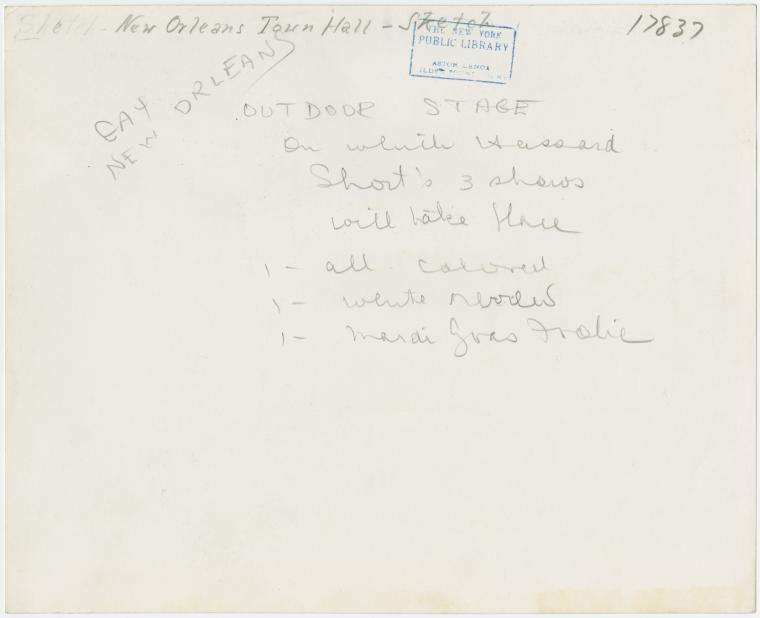 Sketch - New Orleans Town Hall - Sketch
17837
THE NEW YORK
PUBLIC LIBRARY
ASTOR, LENOX
GAY
NEW ORLEANS
OUTDOOR STAGE
on which Hassard
Short's 3 shows
will take place
1 - all colored
1 - white review
1 - Mardi Gras Frolic